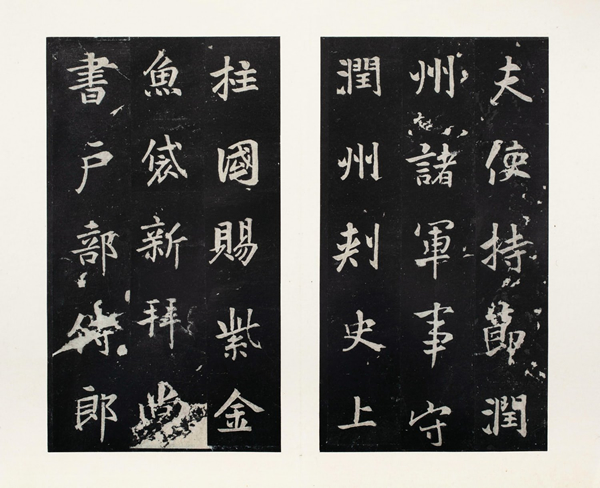 夫使持節潤
州諸軍事守
潤州刺史上
柱國賜紫金
魚袋新拜尚
書戶部侍郎